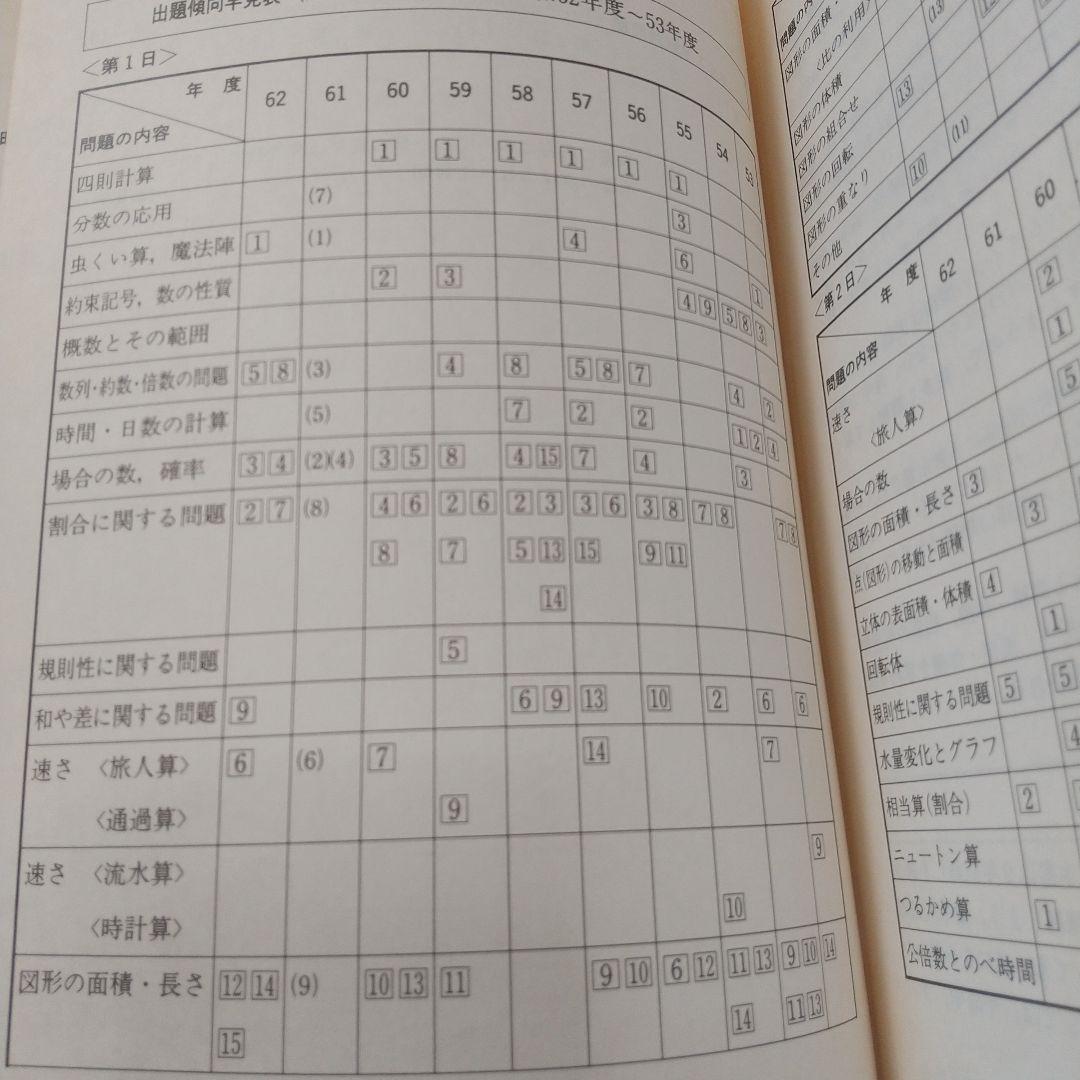 出題傾向早見表
62年度～53年度
＜第1日＞
年 度 62 61 60 59 58 57 56 55 54 53
問題の内容
四則計算 1 1 1 1 1 1
分数の応用 (7) 3
虫くい算，魔法陣 1 (1) 4 6
約束記号，数の性質 2 3 4 9 5 8 3 1
概数とその範囲
数列・約数・倍数の問題 5 8 (3) 4 8 5 8 7 4 2
時間・日数の計算 (5) 7 2 2 1 2 4
場合の数，確率 3 4 (2)(4) 3 5 8 4 15 7 4 3
割合に関する問題 2 7 (8) 4 6 2 6 2 3 3 6 3 8 7 8 7 8
8 7 5 13 15 9 11
14
規則性に関する問題 5
和や差に関する問題 9 6 9 13 10 2 6 6
速さ 〈旅人算〉 6 (6) 7 14 7
〈通過算〉 9
速さ 〈流水算〉 9
〈時計算〉 10
図形の面積・長さ 12 14 (9) 10 13 11 9 10 6 12 11 13 9 10 14
15 14 11 13
問題の内
図形の面積・
〈比の利用〉 (13)
図形の体積
図形の組合せ 13
図形の回転
図形の重なり (11)
その他 10
＜第2日＞
年 度 62 61 60
問題の内容
速さ 2
〈旅人算〉 1
場合の数 5
図形の面積・長さ 3
点(図形)の移動と面積 3
立体の表面積・体積 4
回転体 1
規則性に関する問題 5 5
水量変化とグラフ 4
相当算(割合) 2
ニュートン算
つるかめ算 1
公倍数とのべ時間